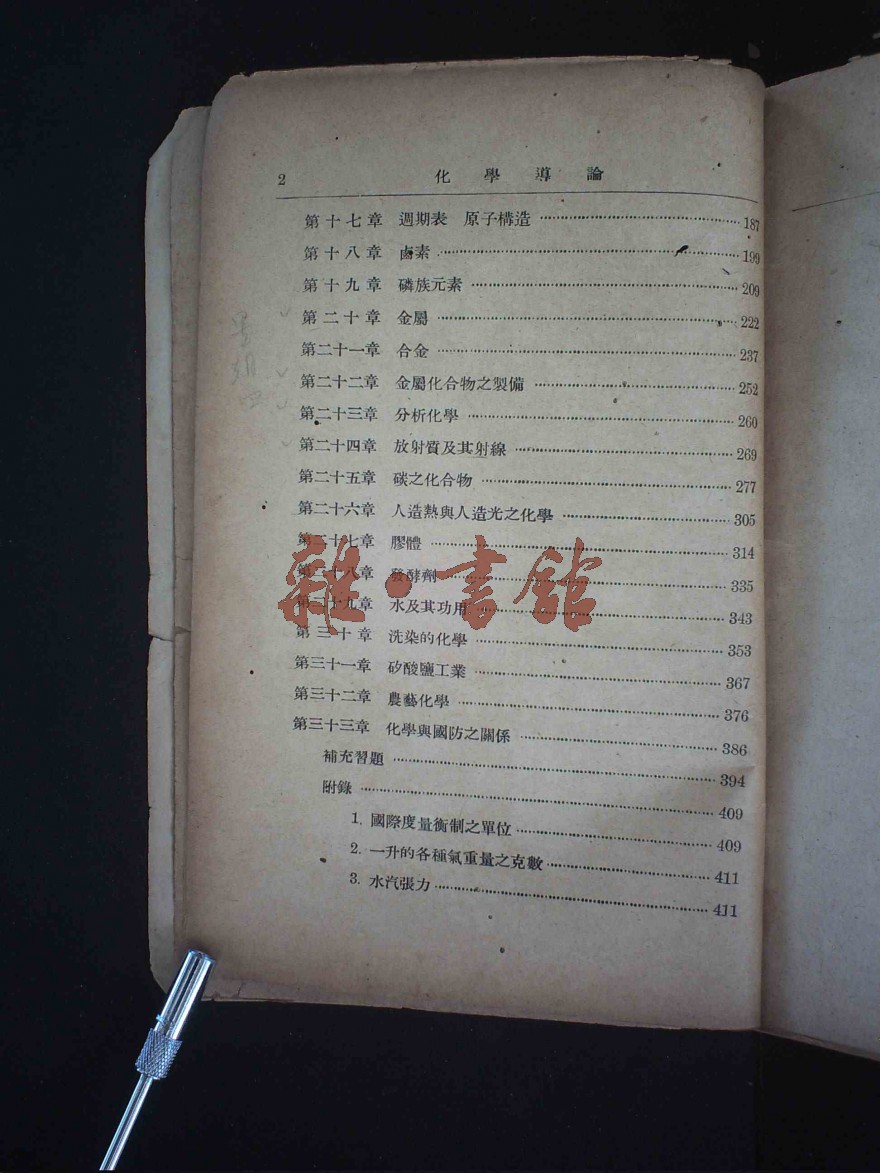 2 化學導論
第十七章 週期表 原子構造 187
第十八章 鹵素 199
第十九章 磷族元素 209
第二十章 金屬 222
第二十一章 合金 237
第二十二章 金屬化合物之製備 252
第二十三章 分析化學 260
第二十四章 放射質及其射線 269
第二十五章 碳之化合物 277
第二十六章 人造熱與人造光之化學 305
第二十七章 膠體 314
第二十八章 發酵劑 335
第二十九章 水及其功用 343
第三十章 洗染的化學 353
第三十一章 矽酸鹽工業 367
第三十二章 農藝化學 376
第三十三章 化學與國防之關係 386
補充習題 394
附錄 409
1. 國際度量衡制之單位 409
2. 一升的各種氣重量之克數 411
3. 水汽張力 411
雜·書館